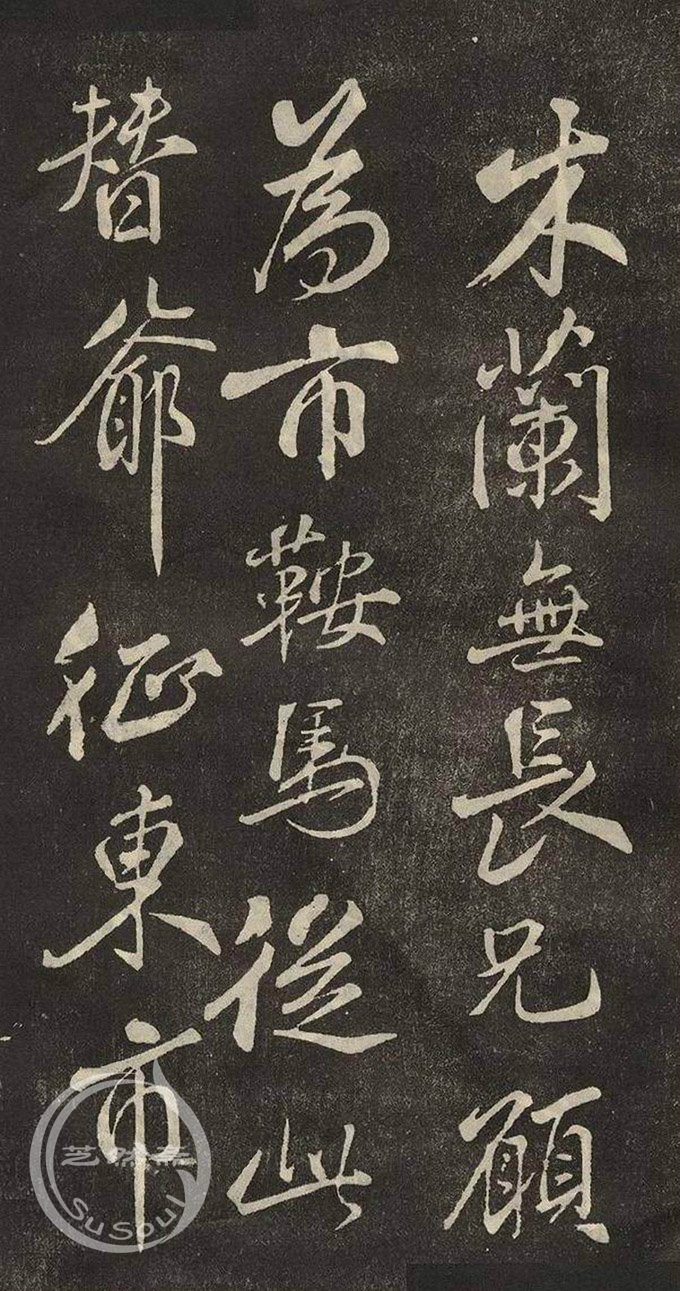 木蘭無長兄願
為市鞍馬從此
替爺征東市
SuSoul